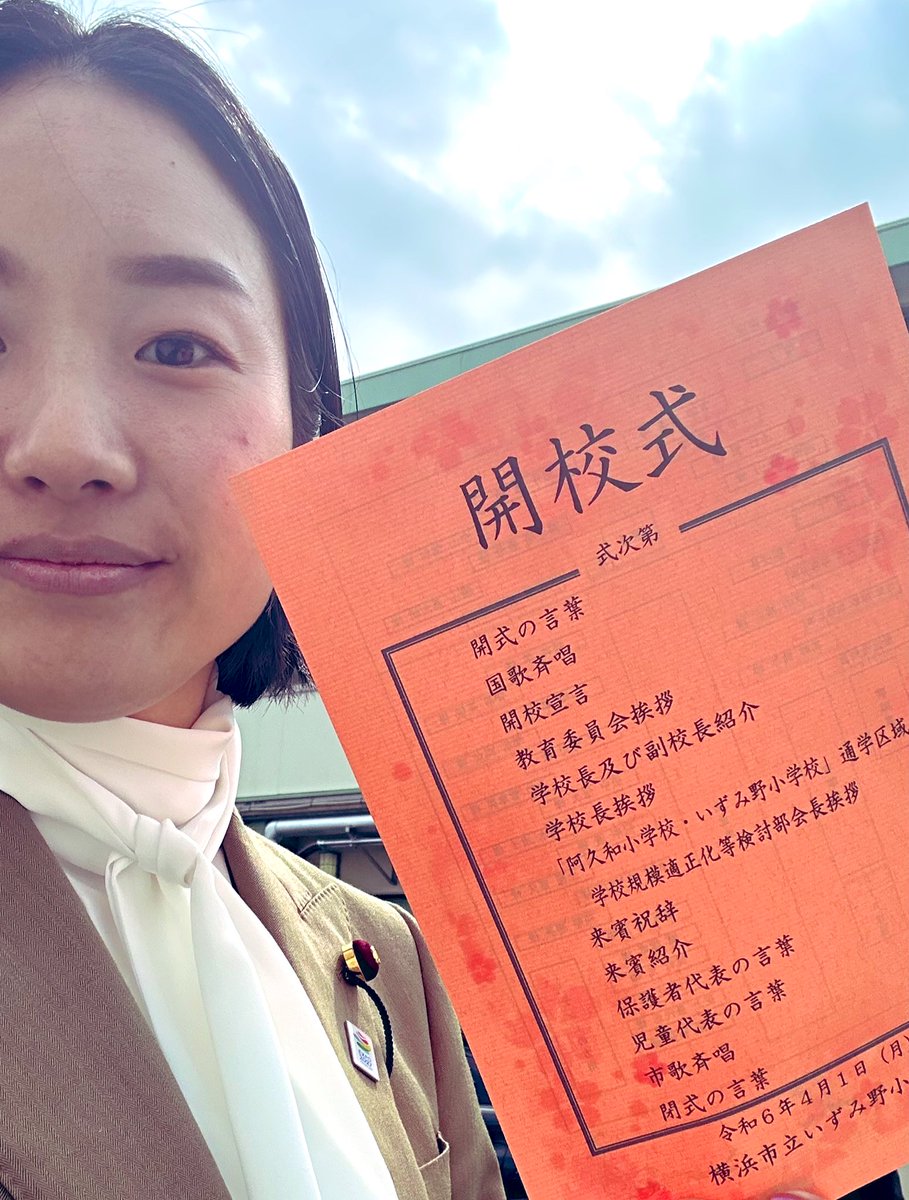 開校式
式次第
開式の言葉
国歌斉唱
開校宣言
教育委員会挨拶
学校長及び副校長紹介
学校長挨拶
「阿久和小学校・いずみ野小学校」通学区域
学校規模適正化等検討部会長挨拶
来賓祝辞
来賓紹介
保護者代表の言葉
児童代表の言葉
市歌斉唱
閉式の言葉
令和6年4月1日(月)
横浜市立いずみ野小